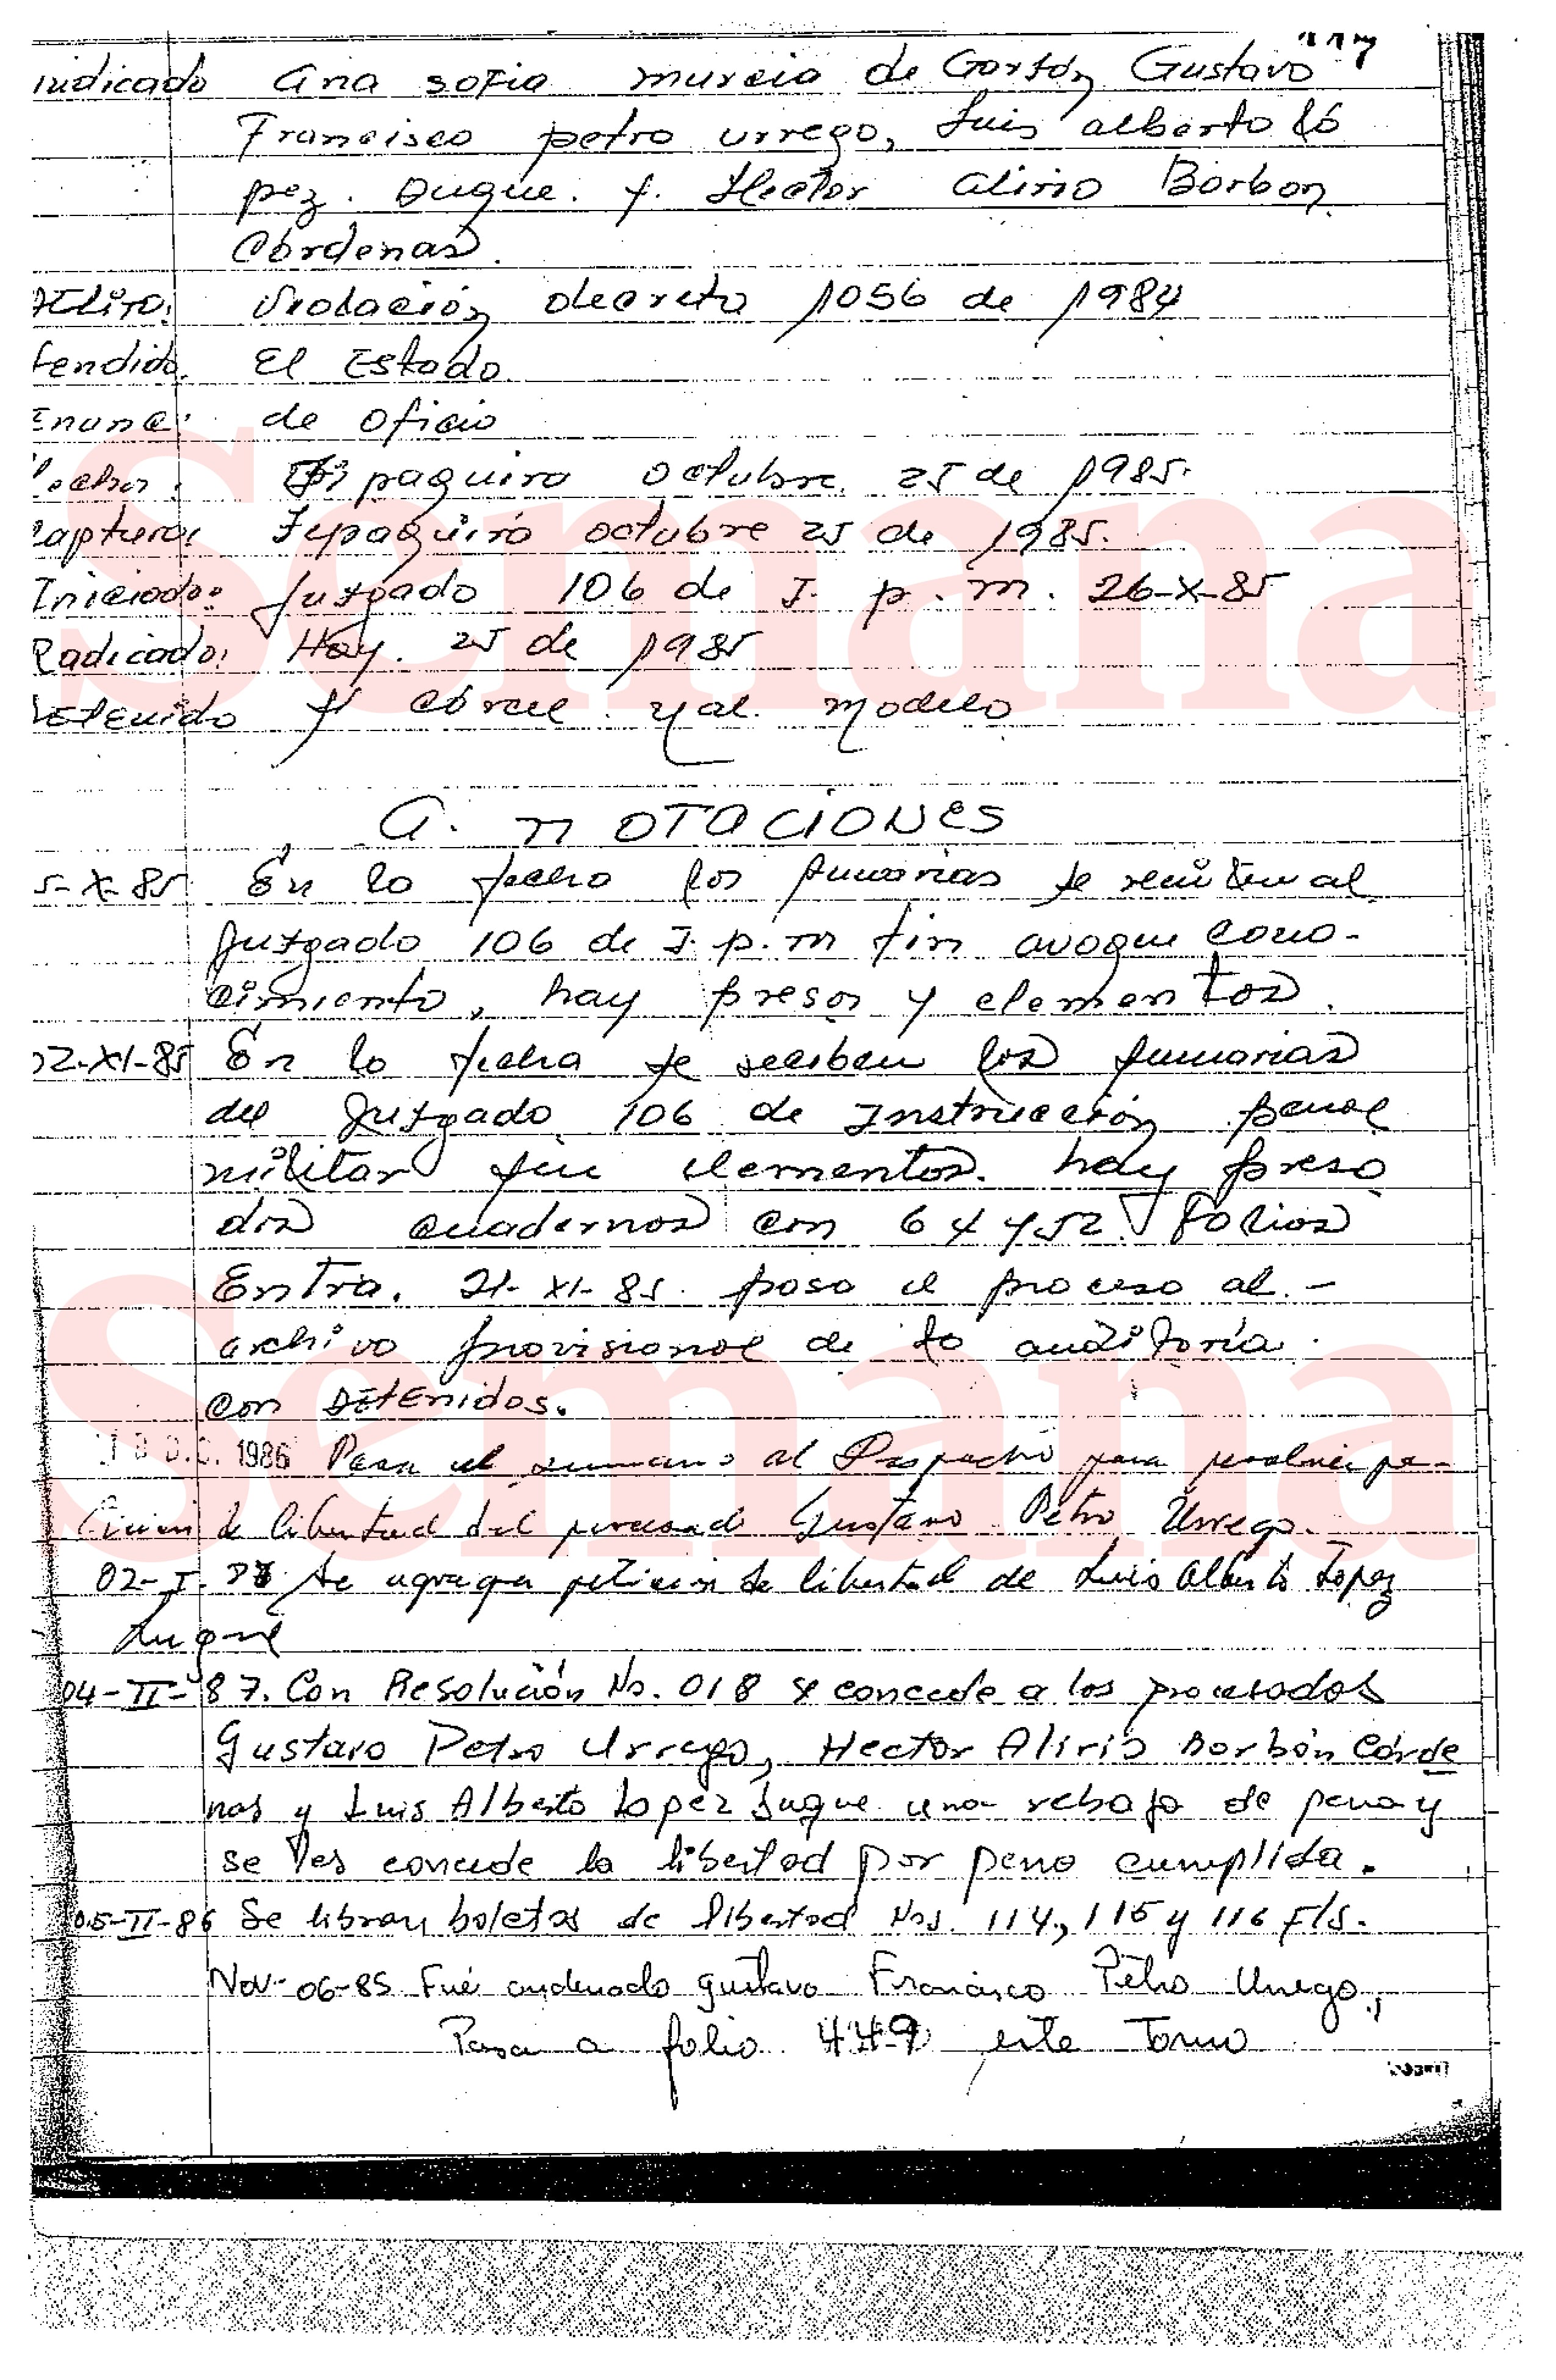 indicado Ana Sofia murcia de Garzón Gustavo
Francisco petro urrego, Luis alberto ló
pez. Duque. y. Hector alirio Borbon
Cárdenas.
Violación decreto 1056 de 1984
fendido. El Estado
Enunc: de Oficio
echos: Zipaquira octubre 25 de 1985.
captura: Zipaquirá octubre 25 de 1985.
Iniciado: Juzgado 106 de I. p. m. 26-X-85
Radicado: Hoy. 25 de 1985
etenido Cárcel modelo
A. nOTACIONES
5-X-85 En la fecha las sumarias se remiten al
Juzgado 106 de I. p. m fin avoque cono-
cimiento, hay presos y elementos.
02-XI-85 En la fecha se reciben las sumarias
del Juzgado 106 de Instrucción penal
militar sin elementos. hay preso
dos cuadernos con 64 y 52 folios
Entra. 21-XI-85 pasa el proceso al.-
archivo provisional de la auditoría.
con DETENIDOS.
1986 Pasa el sumario al Despacho para resolver pe-
tición de libertad del procesado Gustavo Petro Urrego.
02-I-87 Se agrega petición de libertad de Luis Alberto Lopez
Duque
04-II-87. Con Resolución No. 018 se concede a los procesados
Gustavo Petro Urrego, Hector Alirio Borbón Cárde
nas y Luis Alberto Lopez Duque una rebaja de pena y
se les concede la libertad por pena cumplida.
05-II-86 Se libran boletas de libertad Nos. 114, 115 y 116 F/S.
Nov-06-85 Fué condenado Gustavo Francisco Petro Urrego,
Pasa a folio 449 este Tomo
Semana
Semana